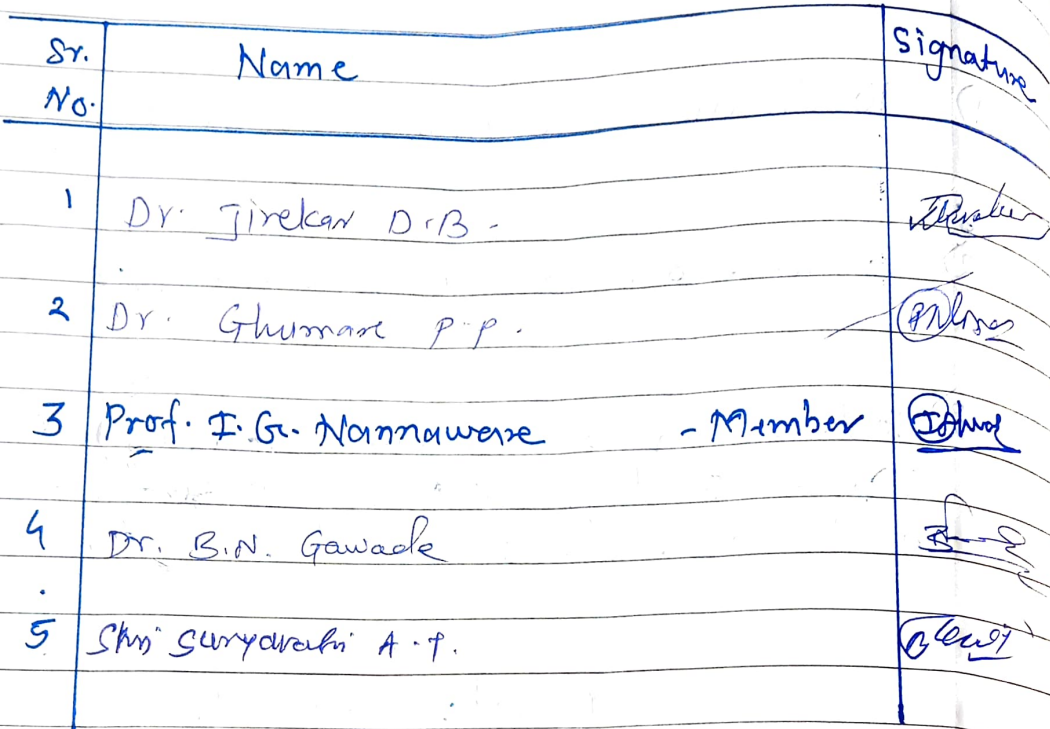 Sr. No. Name Signature
1 Dr. Jirekar D.B.
2 Dr. Ghumare P.P.
3 Prof. I. G. Nannaware - Member
4 Dr. B.N. Gawade
5 Shri A.